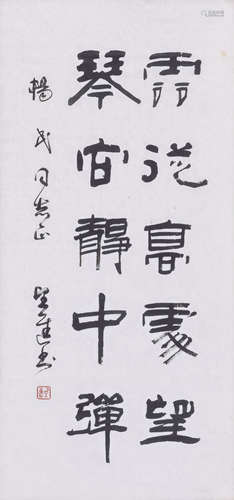 雲從高處望
琴向靜中彈
楊 同志正
書